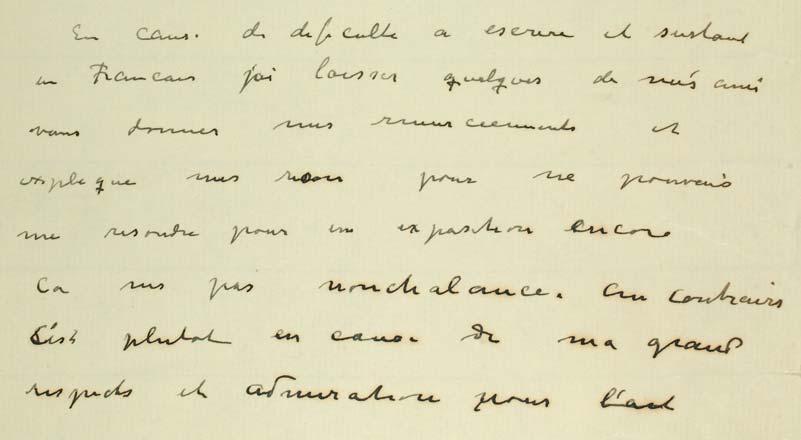 En caus. de deficulte a escrire et surtout
en Francais j'ai laisser quelques de més amis
vous donner mes remerciements et
expleque mes reson pour ne pouvais
me resoudre pour un exposition encore
Ca nes pas nonchalance. Au contrairs
C'est plutot en cause de ma grand
respects et admiration pour l'art